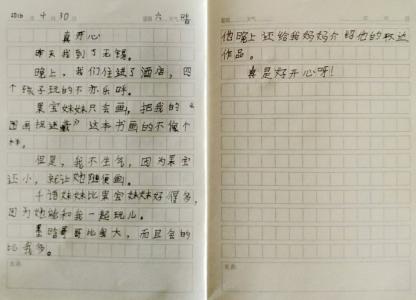 2016 年 4 月 30 日 星期 六 天气 晴
真开心
昨天我到了无锡。
晚上，我们住进了酒店，四
个孩子玩的不亦乐乎。
果宝妹妹只会画，把我的“
图画捉迷藏”这本书画的不像个
样。
但是，我不生气，因为果宝
还小，就让她随便画。
千语妹妹比果宝妹妹好得多，
因为她能和我一起玩儿。
哥哥比我大，而且会的
比我多。
他晚上还给我妈妈介绍他的
作品。
真是好开心呀！